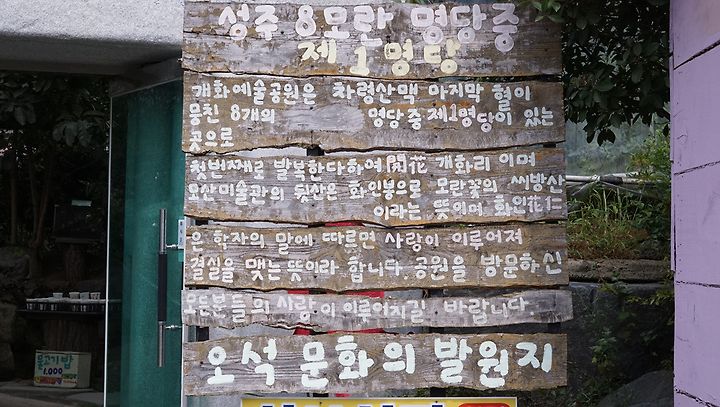 성주 8모란 명당중
제 1 명당
개화예술공원은 차령산맥 마지막 혈이
뭉친 8개의 명당중 제1명당이 있는
곳으로
첫번째로 발복한다하여 開花 개화리 이며
모산미술관의 뒷산은 화인봉으로 모란꽃의 씨방산
이라는 뜻이며 화인花仁
은 한자의 말에 따르면 사랑이 이루어져
결실을 맺는 뜻이라 합니다. 공원을 방문하신
모든분들의 사랑이 이루어지길 바랍니다.
오석 문화의 발원지
물고기밥
1,000